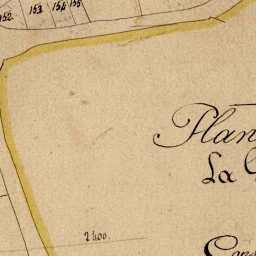 152 153 154 155
Plan
La
2400.